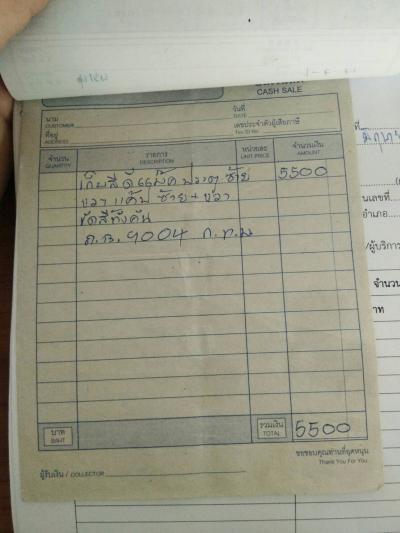 CASH SALE
วันที่
DATE
นาม
CUSTOMER
เลขประจำตัวผู้เสียภาษี
Tax ID No.
ที่อยู่
ADDRESS
จำนวน
QUANTITY
รายการ
DESCRIPTION
หน่วยละ
UNIT PRICE
จำนวนเงิน
AMOUNT
เก็บสี ประตู ซ้าย 5500
ขวา แค้ป ซ้าย + ขวา
ขัดสีทั้งคัน
9004 ก.ท.ม
บาท
BAHT
รวมเงิน
TOTAL
5500
ขอขอบคุณท่านที่อุดหนุน
Thank You For You
ผู้รับเงิน / COLLECTOR
ที่
เลขที่
อำเภอ
/ผู้บริการ
จำนวน
บาท